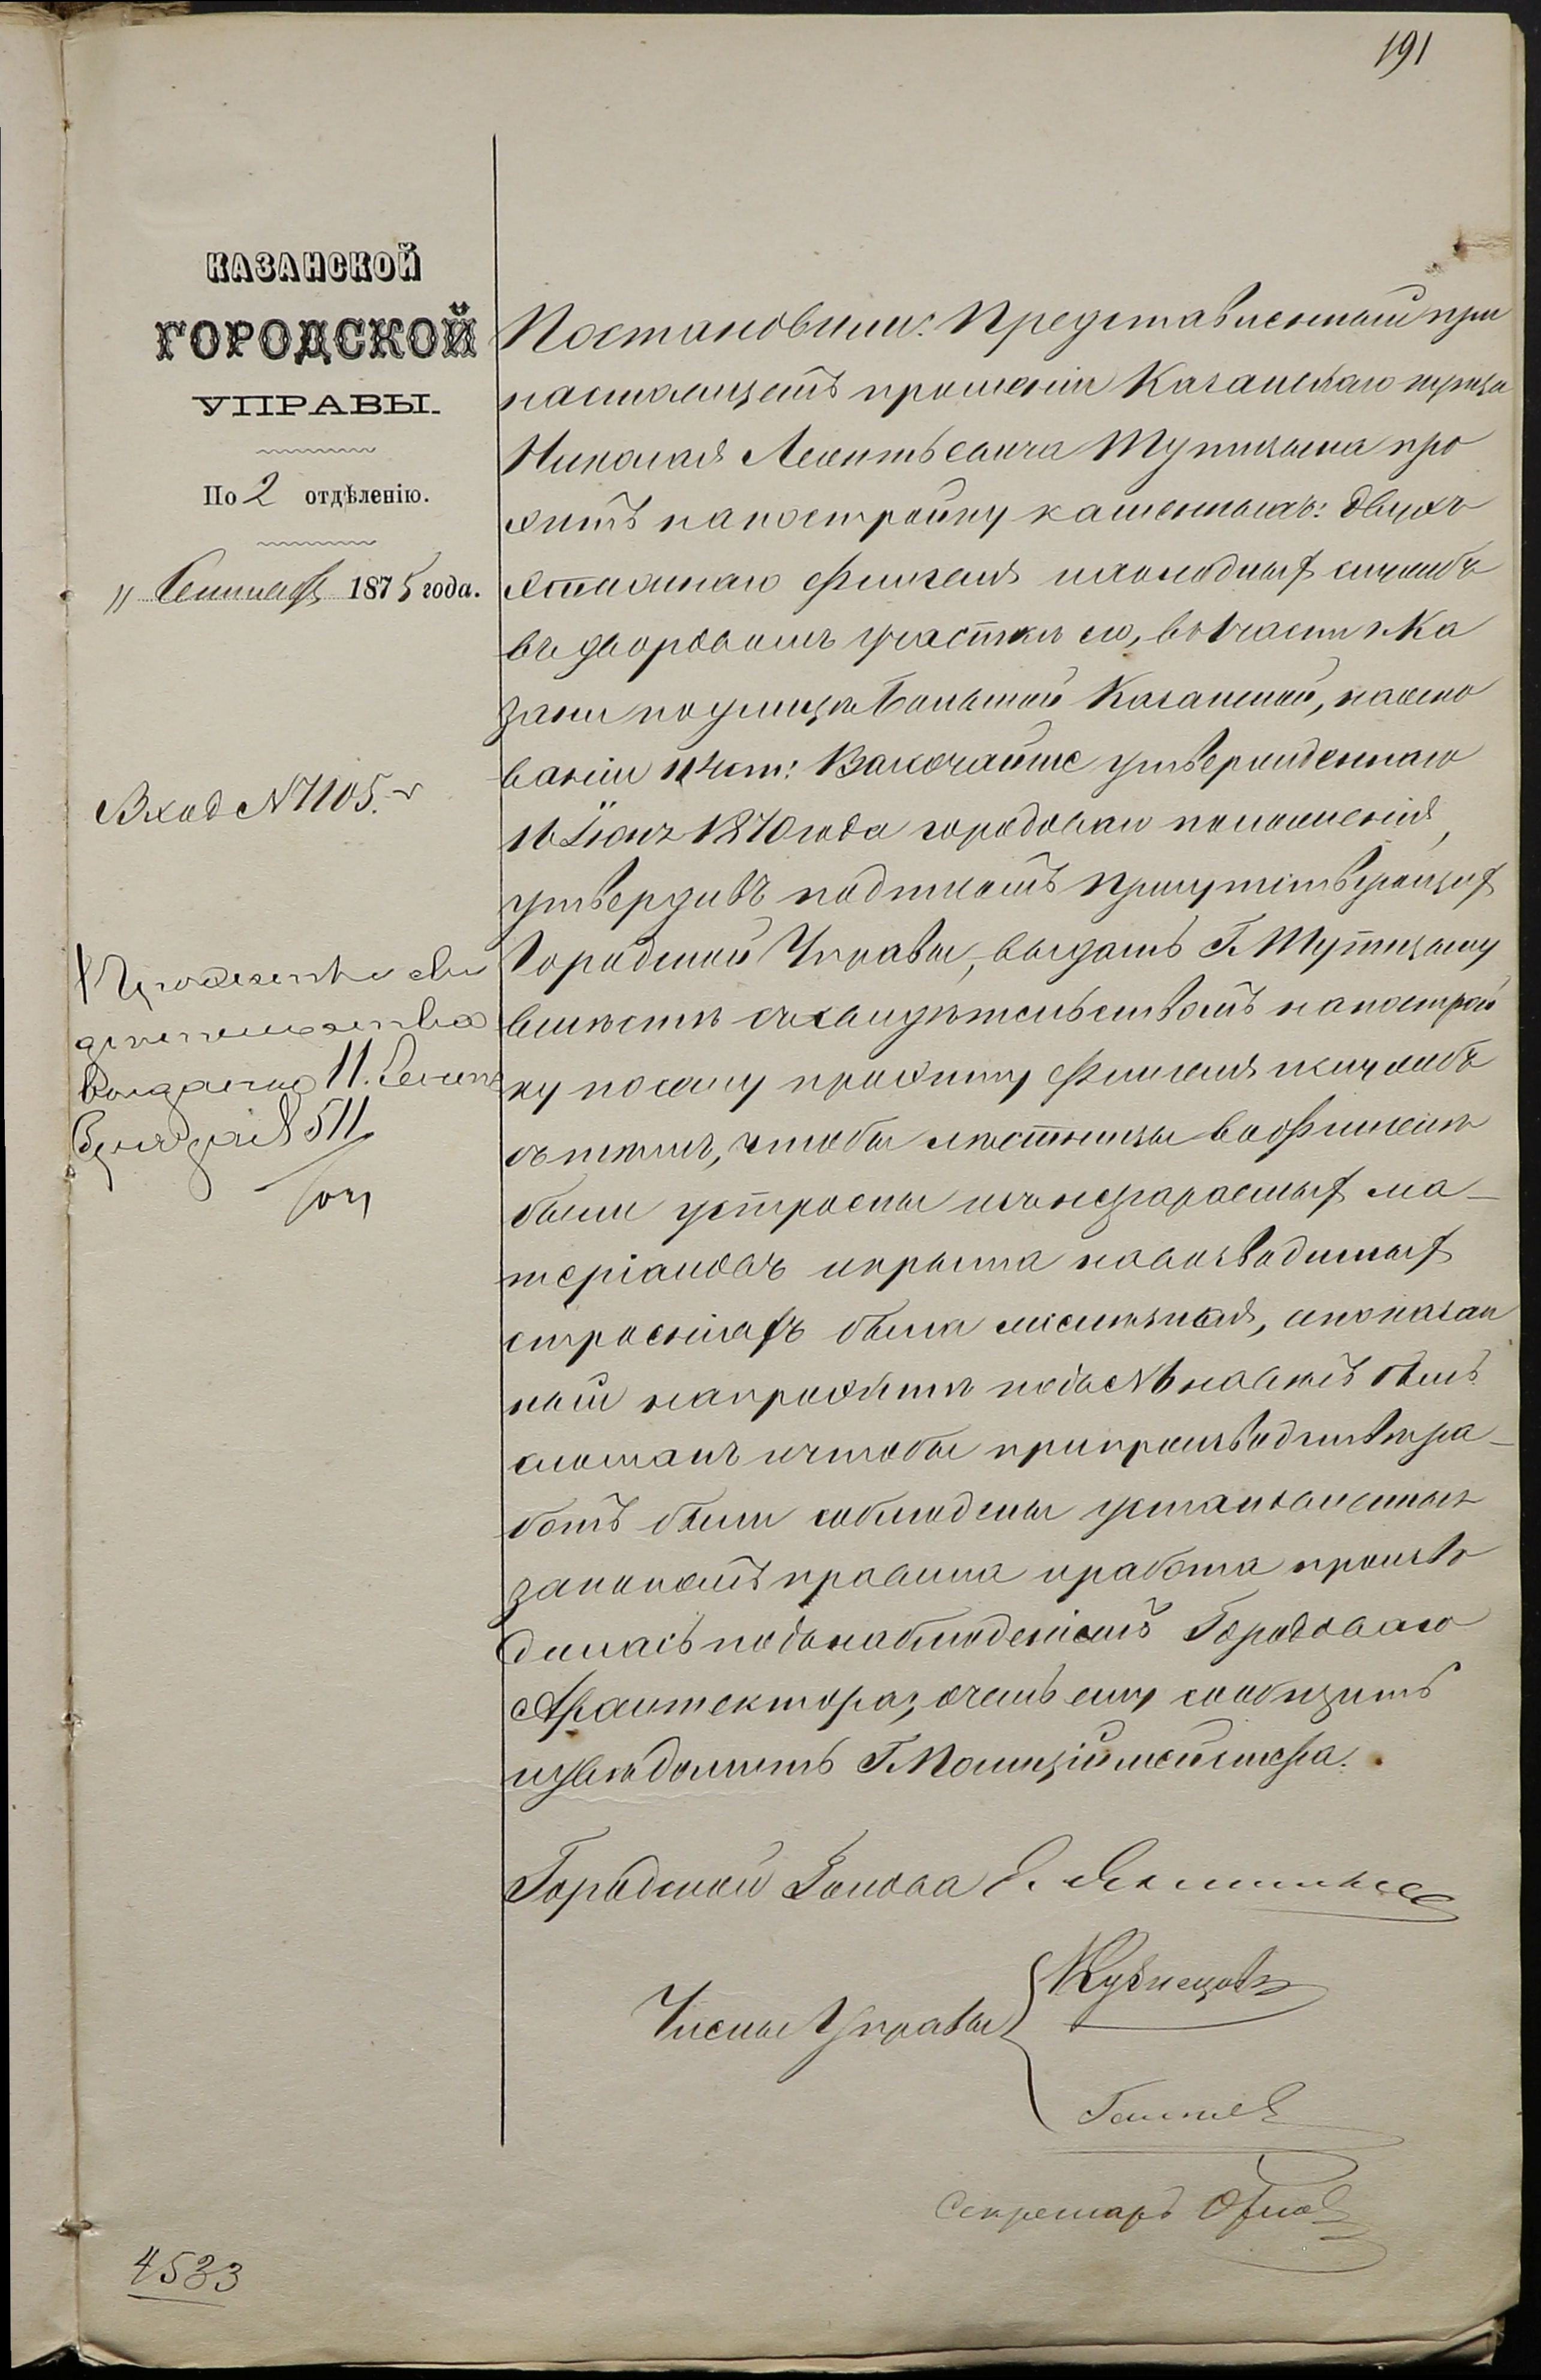 191
КАЗАНСКОЙ
ГОРОДСКОЙ
УПРАВЫ.
По 2 отдѣленію.
" Сентября 1875 года.
Вход № 7105.
Проектъ и сви
дѣтельство
выдано 11. Сентя
бря за № 511
Постановили: Представленный при
настоящемъ прошеніи Казанскаго купца
Николая Леонтьевича Тупицына про
эктъ на постройку каменныхъ: двухъ
этажнаго флигеля и холодныхъ службъ
въ дворовомъ участкѣ его, въ 1 части г. Ка
зани по улицѣ Большой Казанской, на осно
ваніи 114 ст: Высочайше утвержденнаго
16 Іюня 1870 года городоваго положенія,
утвердивъ подписомъ присутствующихъ
Городской Управы, выдать Г. Тупицыну
вмѣстѣ съ свидѣтельствомъ на построй
ку по сему проэкту флигеля и службъ
съ тѣмъ, чтобы лѣстницы во флигелѣ
были устроены изъ несгараемыхъ ма-
теріаловъ и крыша на возводимыхъ
строеніяхъ была желѣзная, а показан
ный на проэктѣ подъ № 6 навѣсъ былъ
сломанъ и чтобы при производствѣ ра-
ботъ были соблюдены установленныя
закономъ правила и работа произво
дилась подъ наблюденіемъ Городоваго
Архитектора, о чемъ ему сообщить
и увѣдомить Г. Полиціймейстера.
Городской Голова
Члены Управы
Кузнецовъ
Секретарь
4533